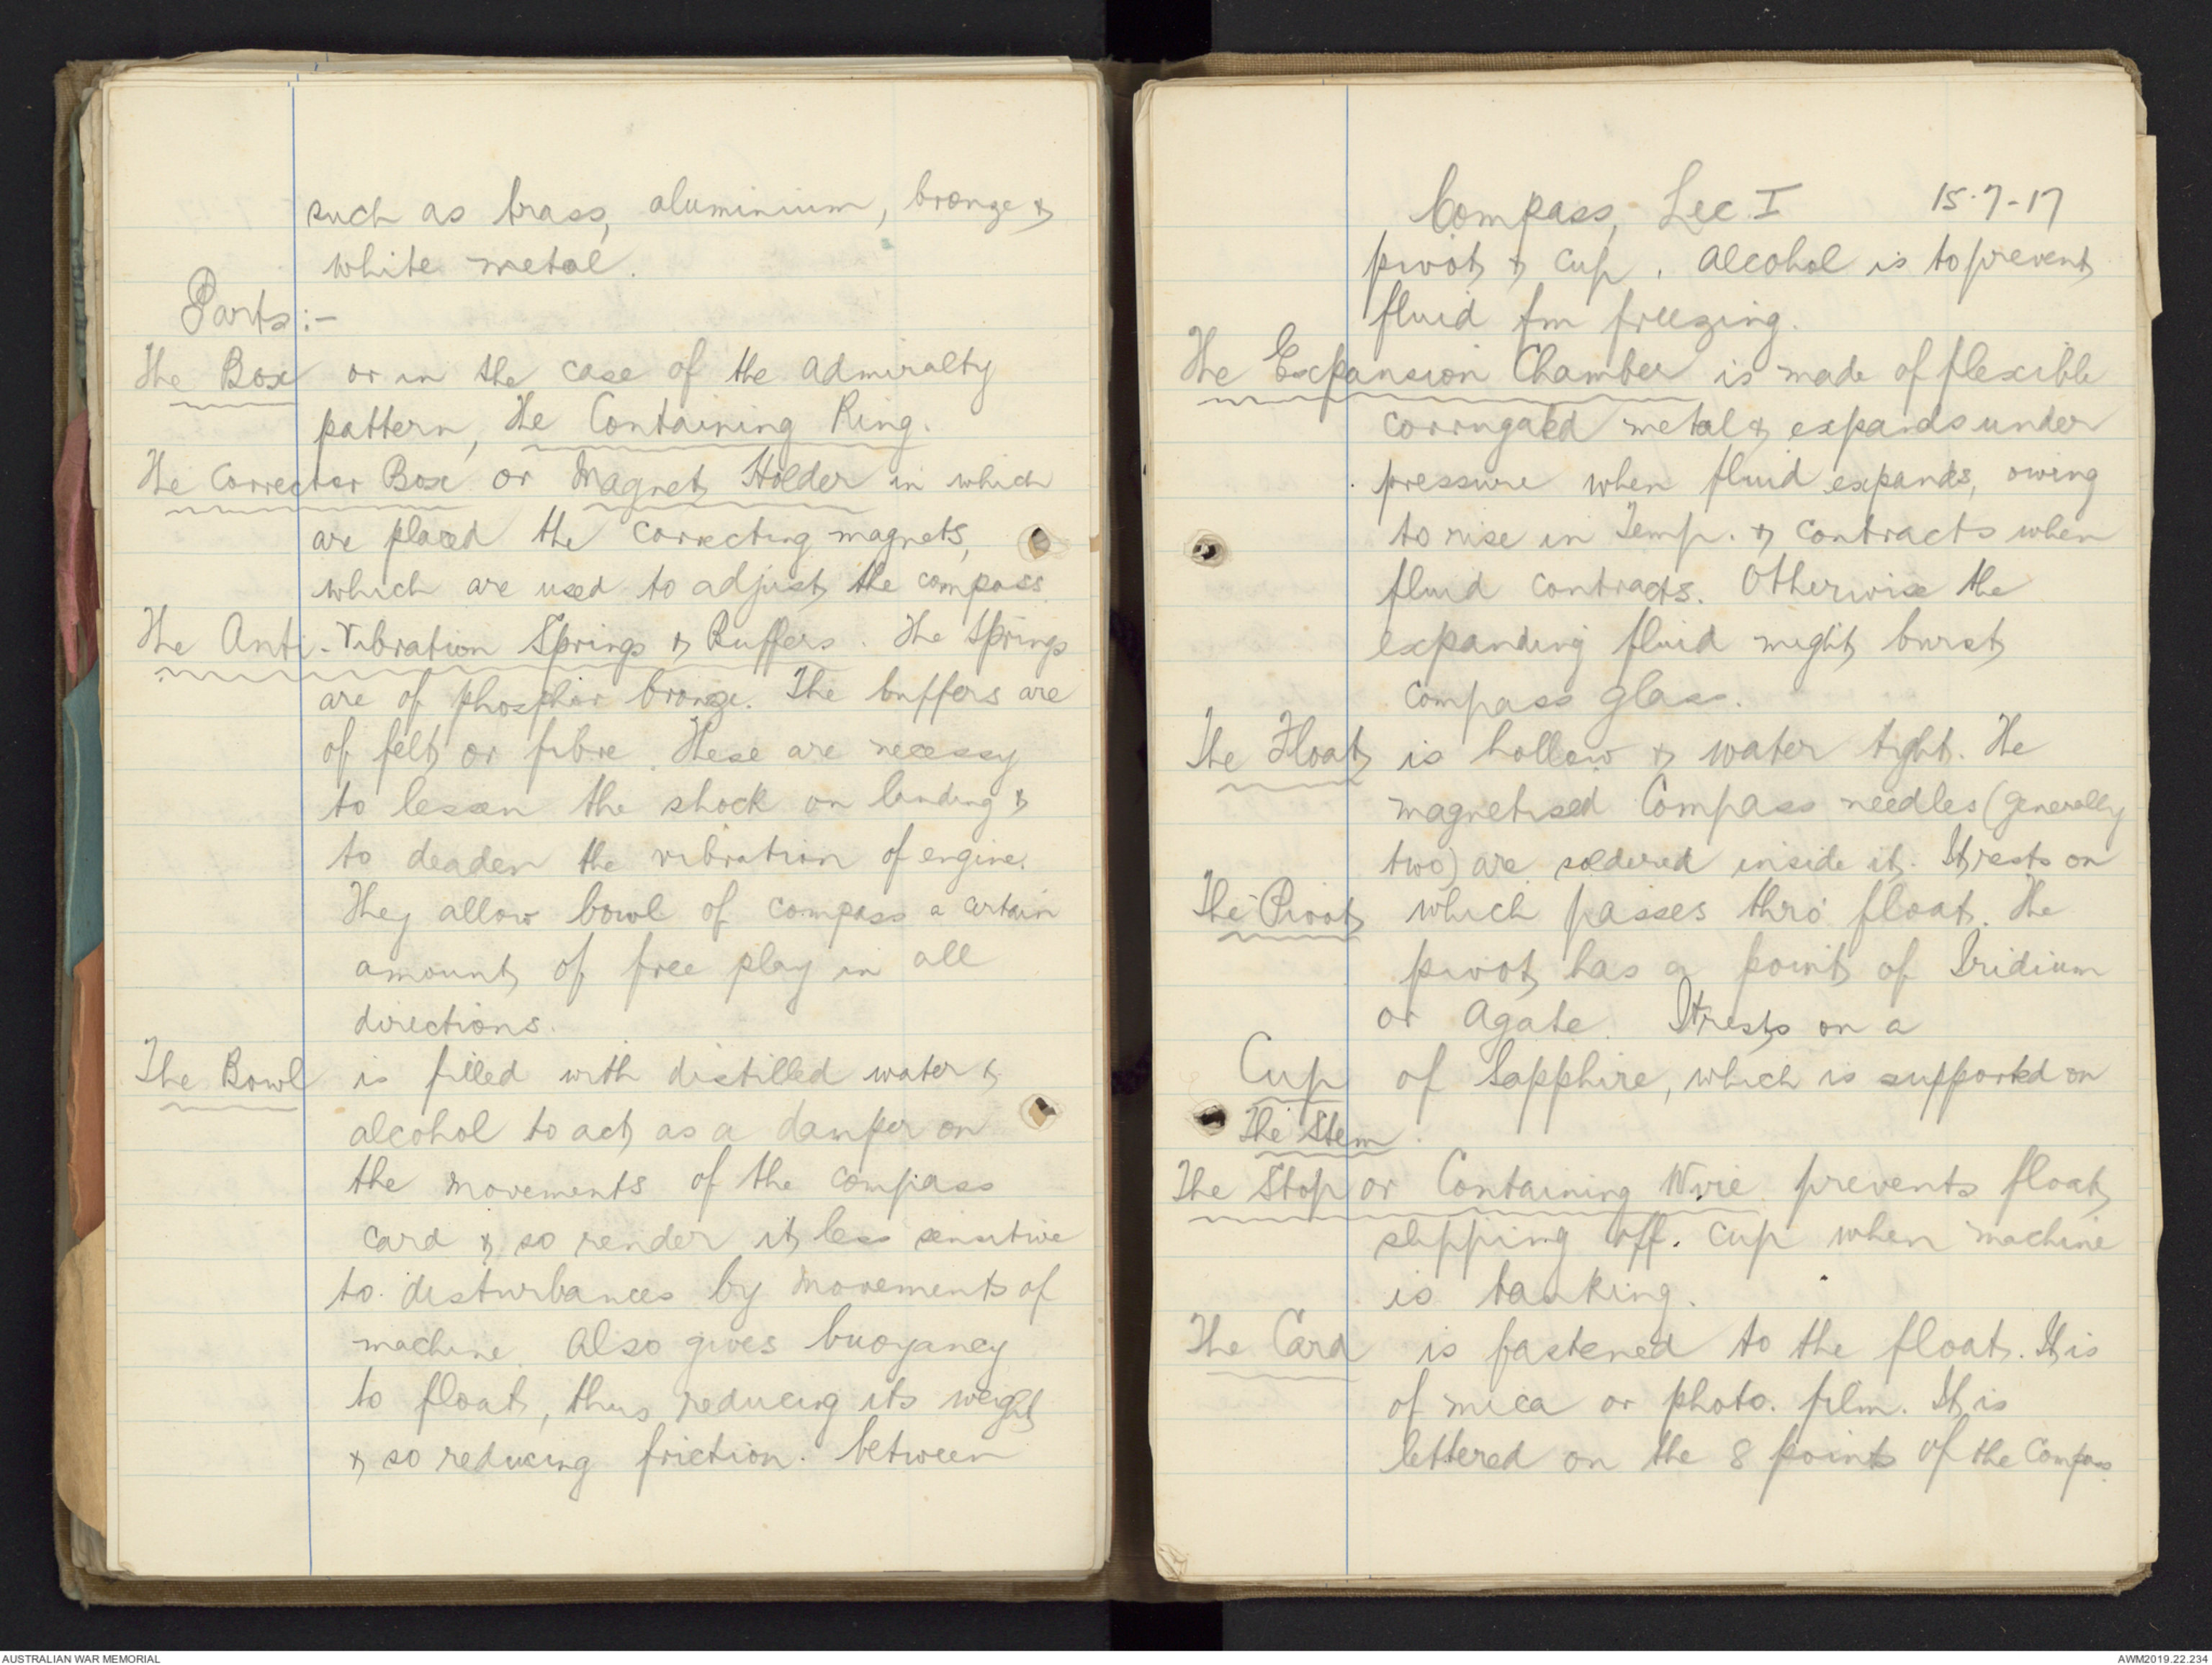 such as brass, aluminium, bronze &
white metal.
Parts:-
The Box or in the case of the Admiralty
pattern, The Containing Ring.
The Corrector Box or Magnet Holder in which
are placed the correcting magnets,
which are used to adjust the compass
The Anti-Vibration Springs & Buffers. The Springs
are of phosphor bronze. The buffers are
of felt or fibre. These are necessy
to lessen the shock on landing &
to deaden the vibration of engine.
They allow bowl of compass a certain
amount of free play in all
directions.
The Bowl is filled with distilled water &
alcohol to act as a damper on
the movements of the compass
card & so render it less sensitive
to disturbances by movements of
machine. Also gives buoyancy
to float, thus reducing its weight
& so reducing friction. between
Compass, Lec I 15-7-17
pivot & cup. Alcohol is to prevent
fluid fm freezing.
The Expansion Chamber is made of flexible
corrugated metal & expands under
pressure when fluid expands, owing
to rise in Temp. & contracts when
fluid contracts. Otherwise the
expanding fluid might burst
compass glass.
The Float is hollow & water tight. The
magnetised Compass needles (generally
two) are soldered inside it. It rests on
The Pivot which passes thro' float. The
pivot has a point of Iridium
or Agate. It rests on a
Cup of Sapphire, which is supported on
The Stem.
The Stop or Containing Wire prevents float
slipping off. cup when machine
is banking.
The Card is fastened to the float. It is
of mica or photo. film. It is
lettered on the 8 points of the Compass
AUSTRALIAN WAR MEMORIAL
AWM2019.22.234